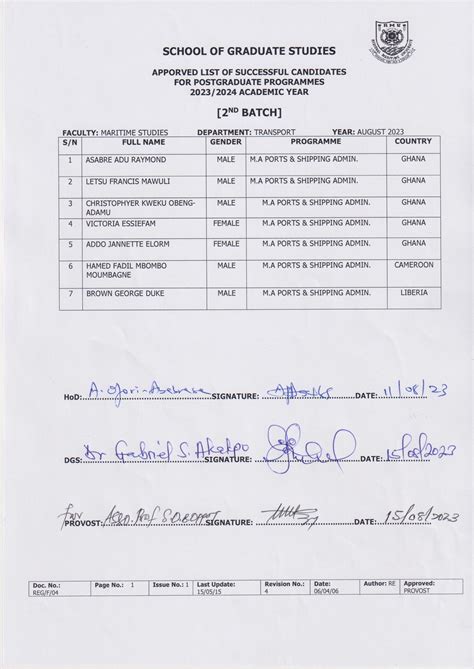 SCHOOL OF GRADUATE STUDIES
APPORVED LIST OF SUCCESSFUL CANDIDATES
FOR POSTGRADUATE PROGRAMMES
2023/2024 ACADEMIC YEAR
[2ND BATCH]
FACULTY: MARITIME STUDIES DEPARTMENT: TRANSPORT YEAR: AUGUST 2023
S/N FULL NAME GENDER PROGRAMME COUNTRY
1 ASABRE ADU RAYMOND MALE M.A PORTS & SHIPPING ADMIN. GHANA
2 LETSU FRANCIS MAWULI MALE M.A PORTS & SHIPPING ADMIN. GHANA
3 CHRISTOPHYER KWEKU OBENG- MALE M.A PORTS & SHIPPING ADMIN. GHANA
ADAMU
4 VICTORIA ESSIEFAM FEMALE M.A PORTS & SHIPPING ADMIN. GHANA
5 ADDO JANNETTE ELORM FEMALE M.A PORTS & SHIPPING ADMIN. GHANA
6 HAMED FADIL MBOMBO MALE M.A PORTS & SHIPPING ADMIN. CAMEROON
MOUMBAGNE
7 BROWN GEORGE DUKE MALE M.A PORTS & SHIPPING ADMIN. LIBERIA
HoD: SIGNATURE: DATE: 11/08/23
DGS: Dr Gabriel S. Akakpo SIGNATURE: DATE: 15/08/2023
for
PROVOST: Asso. Prof SIGNATURE: DATE: 15/08/2023
Doc. No.: Page No.: 1 Issue No.: 1 Last Update: Revision No.: Date: Author: RE Approved:
REG/F/04 15/05/15 4 06/04/06 PROVOST